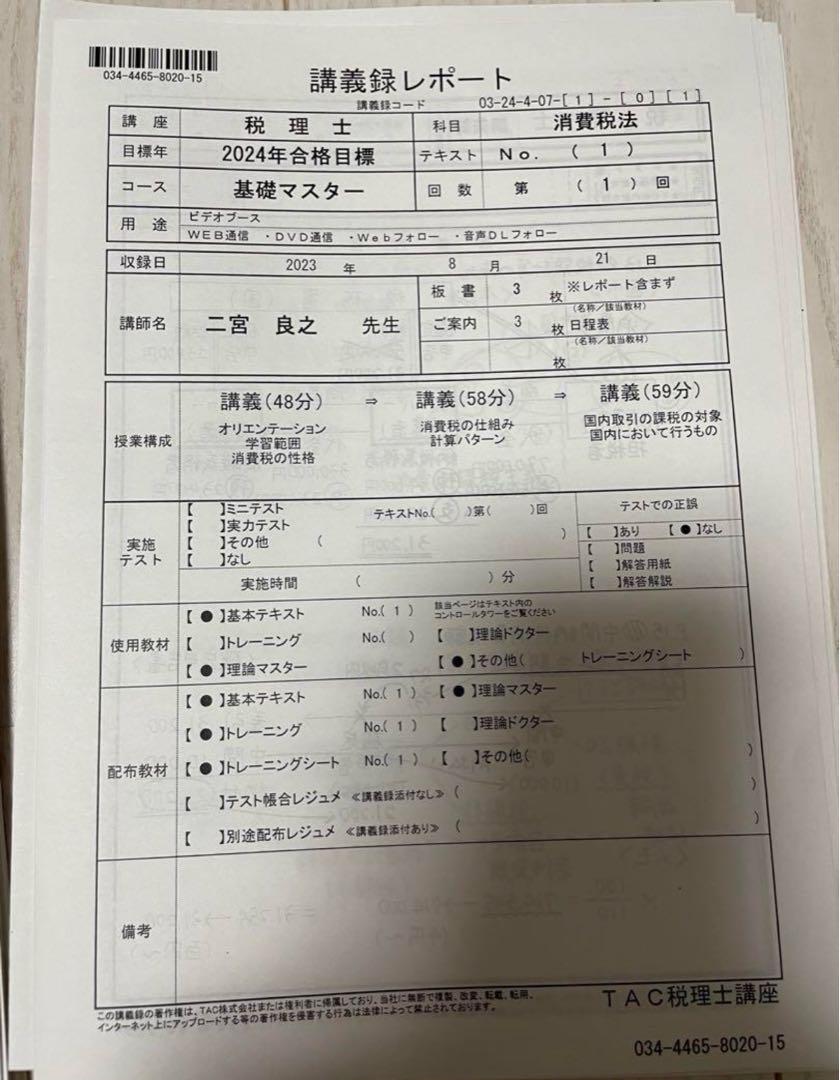 034-4465-8020-15
講義録レポート
講義録コード 03-24-4-07-[1]-[0][1]
講座 税理士 科目 消費税法
目標年 2024年合格目標 テキスト No. (1)
コース 基礎マスター 回数 第 (1) 回
用途 ビデオブース
WEB通信 ・DVD通信 ・Webフォロー ・音声DLフォロー
収録日 2023 年 8 月 21 日
講師名 二宮 良之 先生
板書 3 枚 ※レポート含まず
(名称/該当教材)
ご案内 3 枚 日程表
(名称/該当教材)
枚
授業構成
講義(48分) ⇒ 講義(58分) ⇒ 講義(59分)
オリエンテーション 消費税の仕組み 国内取引の課税の対象
学習範囲 計算パターン 国内において行うもの
消費税の性格
実施テスト
【 】ミニテスト テキストNo.( )第( )回
【 】実力テスト
【 】その他 ( )
【 】なし
実施時間 ( ) 分
テストでの正誤
【 】あり 【●】なし
【 】問題
【 】解答用紙
【 】解答解説
使用教材
【●】基本テキスト No.(1) 該当ページはテキスト内の
コントロールタワーをご覧ください
【 】トレーニング No.( ) 【 】理論ドクター
【●】理論マスター 【●】その他( トレーニングシート )
配布教材
【●】基本テキスト No.(1) 【●】理論マスター
【●】トレーニング No.(1) 【 】理論ドクター
【●】トレーニングシート No.(1) 【 】その他( )
【 】テスト帳合レジュメ ≪講義録添付なし≫ ( )
【 】別途配布レジュメ ≪講義録添付あり≫ ( )
備考
この講義録の著作権は、TAC株式会社または権利者に帰属しており、当社に無断で複製、改変、転載、転用、
インターネット上にアップロードする等の著作権を侵害する行為は法律によって禁止されております。
TAC税理士講座
034-4465-8020-15